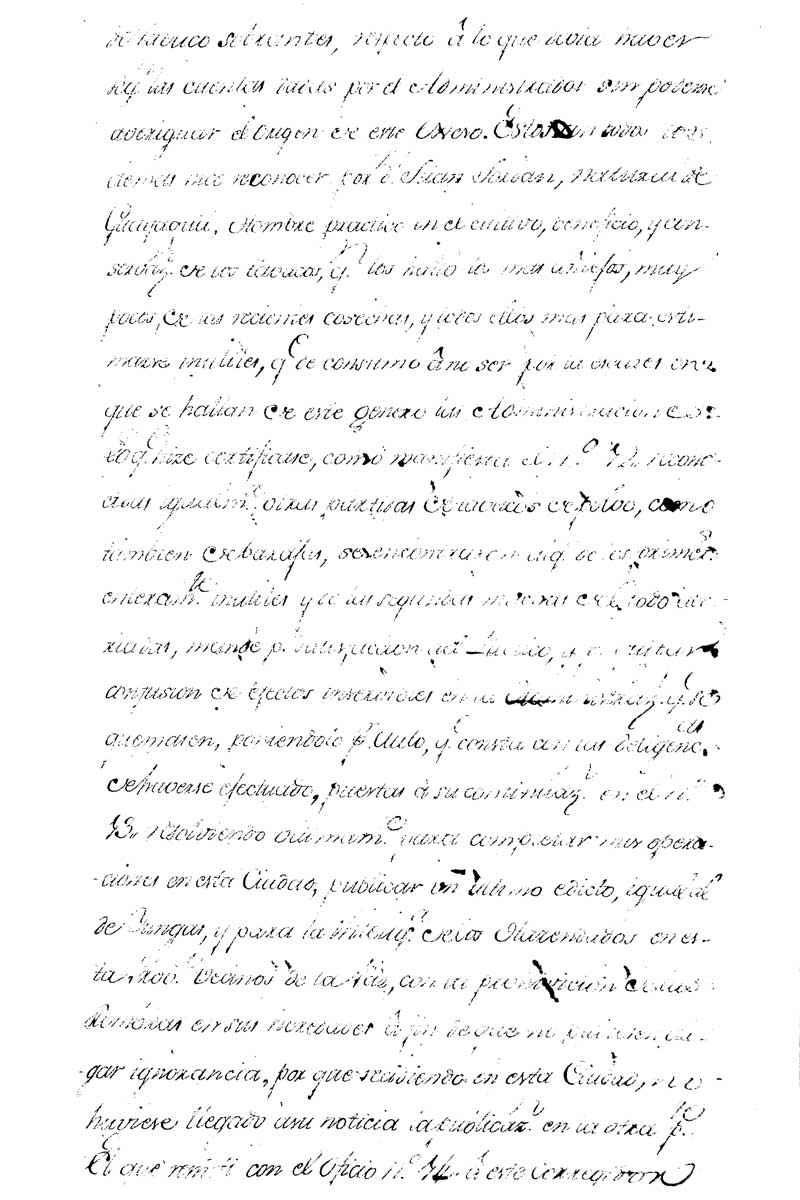 de tavaco sobrantes, respecto â lo que devia haver
seg.n las cuentas dadas por el Administrador sin poderse
averiguar el origen de este exeso. Estos con todos los
demas hice reconocer por d.n Juan Jordan, natural de
Guayaquil, hombre practico en el cultivo, beneficio, y con-
servaz.n de los tavacos, q.n los halló los mas añejos, muy
pocos, de las recientes cosechas, y todos ellos mas para esti-
marse inutiles, q.e de consumo â no ser por la escases en
que se hallan de este genero las Administraciones:
Lo q.e hize certificase, como manifiesta el n.o 72. recono-
cidas igualm.te otras partidas de tavacos de polvo, como
tambien de barajas, se encontraron aq.llos de los primer.s
enteram.te inutiles y de las segundas del todo
mandé p.a del Publico, y evitar
confusion de efectos inservibles en la Administraz.n q.e se
quemasen, poniendolo p.r Auto, q.e consta con las deligenc.as
de haverse efectuado, puestas â su continuaz.n en el n.o
73. Resolviendo ultimam.te para completar mis opera-
ciones en esta Ciudad, publicar un ultimo edicto, igual al
de Yungas, y para la intelig.a de los Hazendados en es-
ta Prov.a Vecinos de la Paz, con la de las
demoras en sus haciendas â fin de que no pudiesen ale-
gar ignorancia, por que recidiendo en esta Ciudad, no
huviese llegado â su noticia la publicaz.n en la otra p.te
El que remiti con el Oficio n.o 74. â este Corregidor